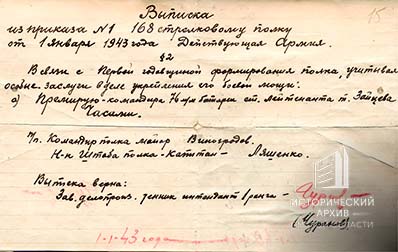 15
Выписка
из приказа №1 168 стрелковому полку
от 1 января 1943 года Действующая Армия.
§2
В связи с первой годовщиной формирования полка, учитывая
особые заслуги в деле укрепления его боевой мощи:
а) Премирую - командира 76 м/м батареи ст. лейтенанта т. Зайцева
Часами.
п/п. Командир полка майор Виноградов.
Н-к Штаба полка - Капитан - Ляшенко.
Выписка верна:
Зав. делопроиз. техник интендант I ранга -
1-1-43 года
ИСТОРИЧЕСКИЙ
АРХИВ
ОБЛАСТИ